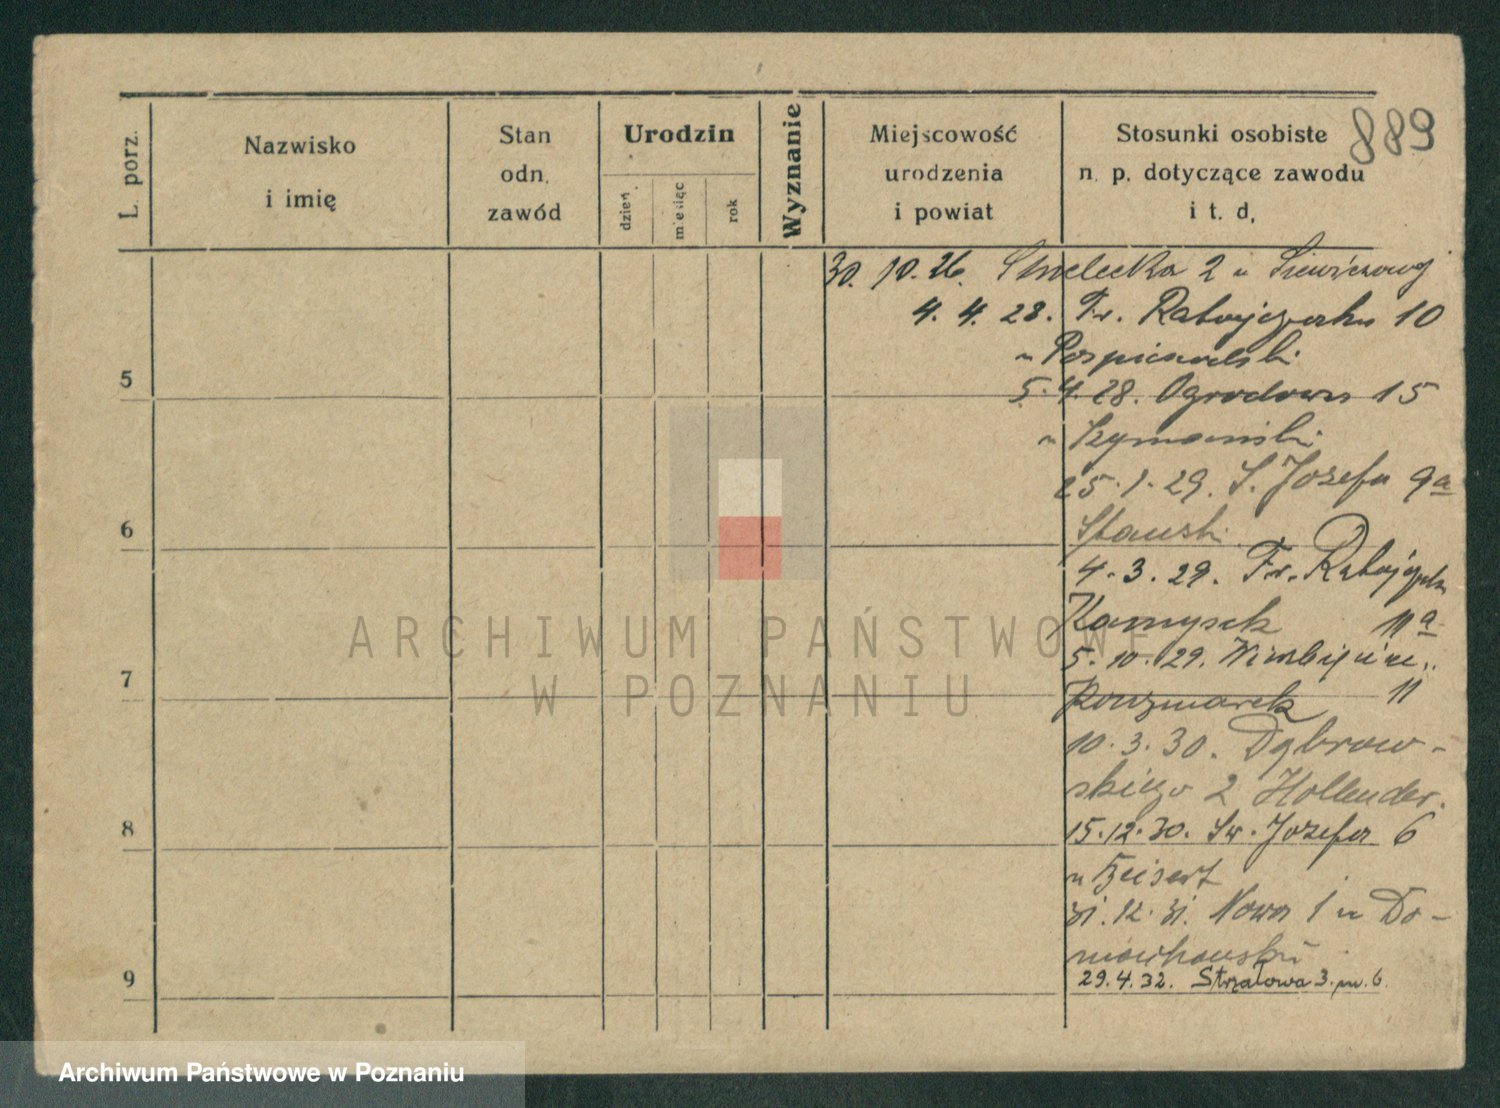 889
L. porz.
Nazwisko
i imię
Stan
odn.
zawód
Urodzin
dzień
miesiąc
rok
Wyznanie
Miejscowość
urodzenia
i powiat
Stosunki osobiste
n. p. dotyczące zawodu
i t. d.
30. 10. 26. Strzelecka 2 u
4. 4. 28. Fr. Ratajczaka 10
u
5
5. 4. 28. Ogrodowa 15
u Szymański
25. 1. 29. Ś. Józefa 9a
6
Stauski
4. 3. 29. Fr. Ratajczaka
Kamyszek 11a
5. 10. 29.
7
Kaczmarek 11
10. 3. 30. Dąbrow-
skiego 2 Hollender.
8
15. 12. 30. Św. Józefa 6
u Beisert
31. 12. 31. Nowa 1 u Do-
9
29. 4. 32. Strzałowa 3. m. 6.
ARCHIWUM PAŃSTWOWE
W POZNANIU
Archiwum Państwowe w Poznaniu